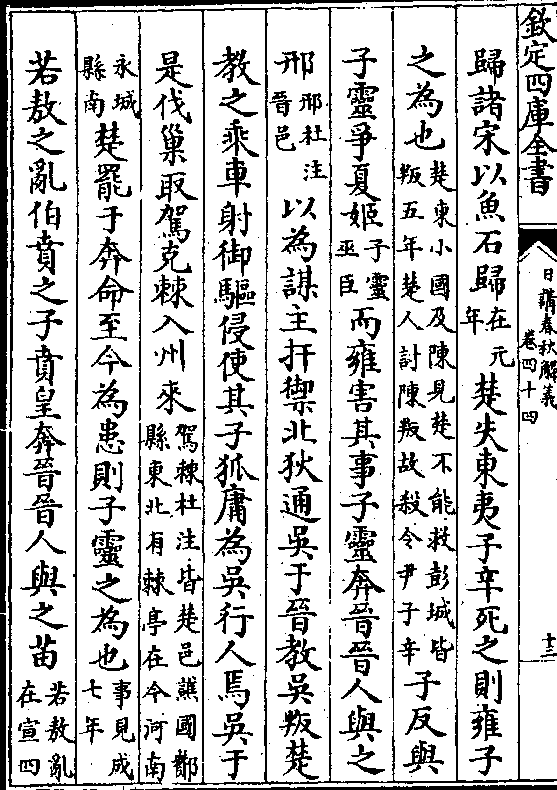 欽定四庫全書
日講春秋解義
卷四十四
十三
歸諸宋以魚石歸在元年楚失東夷子辛死之則雍子
之為也楚東小國及陳見楚不能救彭城皆叛五年楚人討陳叛故殺令尹子辛子反與
子靈爭夏姬子靈巫臣而雍害其事子靈奔晉晉人與之
邢邢杜注晉邑以為謀主扞禦北狄通吳于晉教吳叛楚
教之乘車射御驅侵使其子狐庸為吳行人焉吳于
是伐巢取駕克棘入州來駕棘杜注皆楚邑譙國酇縣東北有棘亭在今河南
永城縣南楚罷于奔命至今為患則子靈之為也事見成七年
若敖之亂伯賁之子賁皇奔晉晉人與之苗若敖亂在宣四